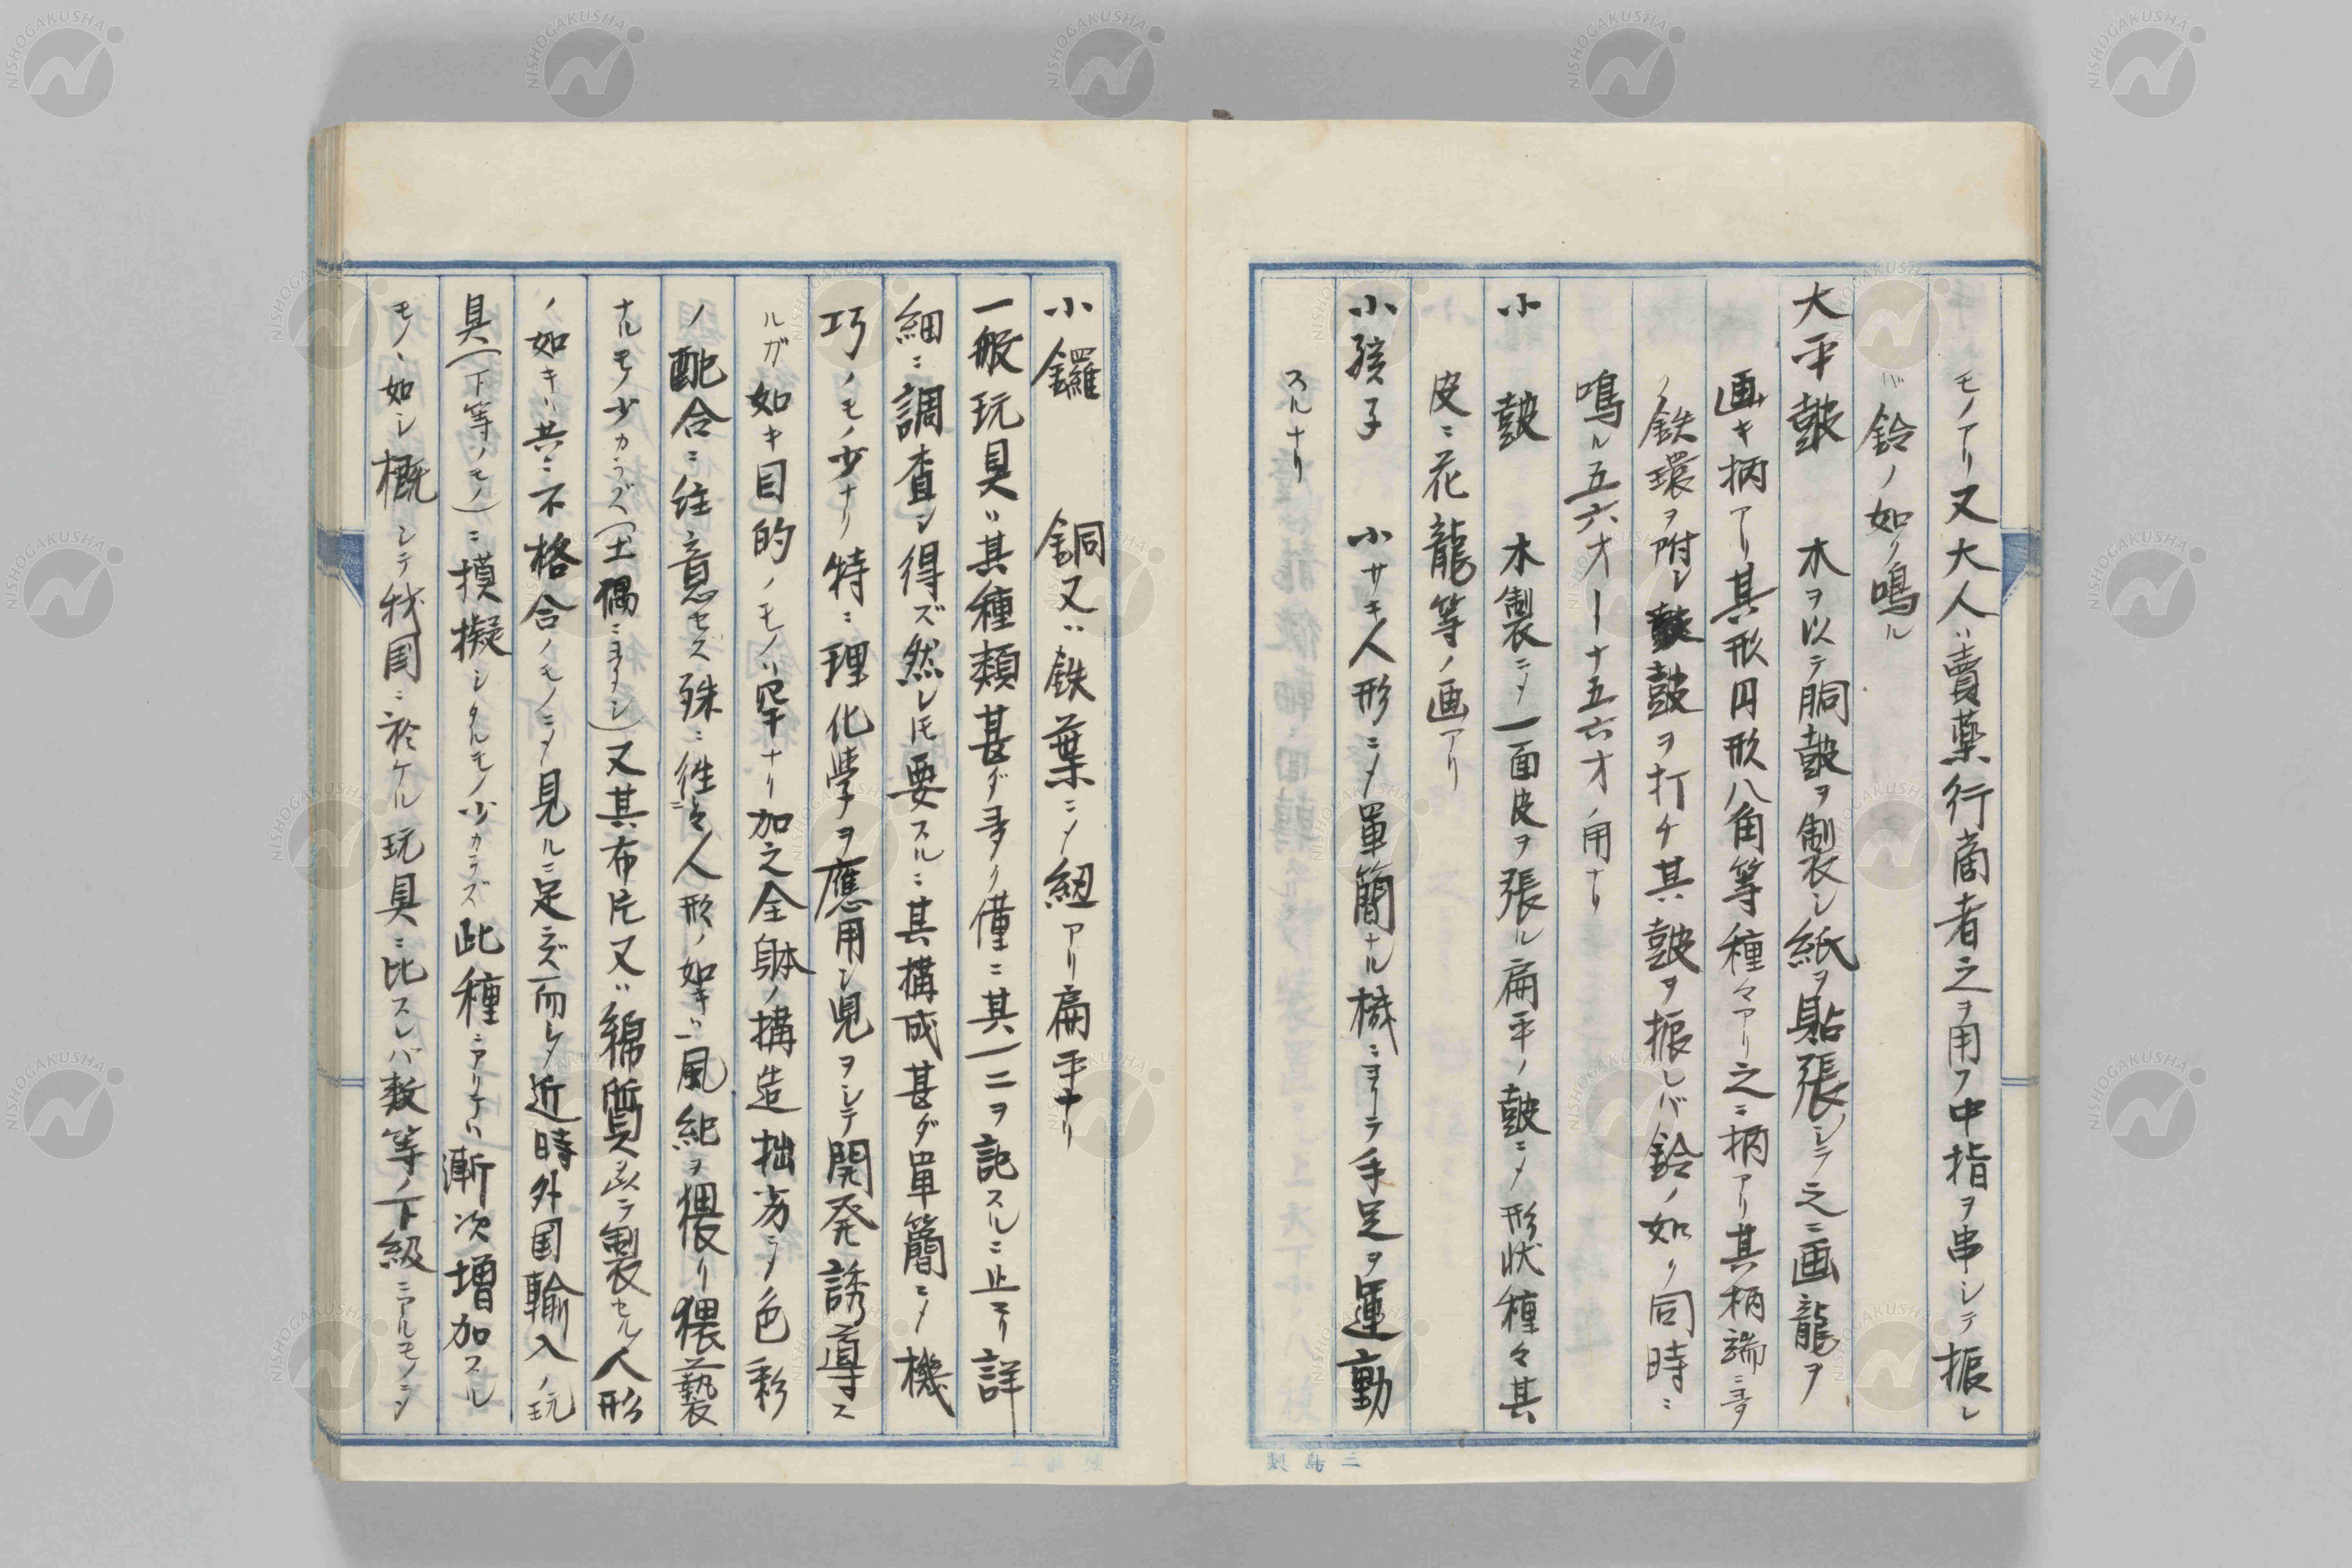 モノアリ又大人ハ賣藥行商者之ヲ用フ中指ヲ串シテ振レ
バ鈴ノ如ク鳴ル
大平皷　木ヲ以テ胴皷ヲ製シ紙ヲ貼張シテ之ニ画龍ヲ
画キ柄アリ其形円形八角等種々アリ之ニ柄アリ其柄端ニ多
ノ鉄環ヲ附シ皷ヲ打チ其皷ヲ振レバ鈴ノ如ク同時ニ
鳴ル五六才ー十五六才ノ用ナリ
小皷　木製ニメ一面皮ヲ張ル扁平ノ皷ニメ形状種々其
皮ニ花龍等ノ画アリ
小孩子　小サキ人形ニメ單簡ナル機ニヨリテ手足ヲ運動
スルナリ
小鑼　銅又ハ鉄葉ニメ紐アリ扁平ナリ
一般玩具ハ其種類甚ダ多ク僅ニ其一二ヲ記スルニ止モリ詳
細ニ調査シ得ズ然レ𪜈要スルニ其構成甚ダ單簡ニメ機
巧ノモノ少ナリ特ニ理化学ヲ應用シ児ヲシテ開発誘導ス
ルガ如キ目的ノモノハ罕ナリ加之全躰ノ搆造拙劣ニメ色彩
ノ配合ニ注意セズ殊ニ往々人形ノ如キハ風紀ヲ猥リ猥褻
ナルモノ少カラズ（土偶ニヨヲシ）又其布片又ハ綿質ヲ以テ製セル人形
ノ如キハ共ニ不格合ノモノニメ見ルニ足ラズ而シテ近時外国輸入ノ玩
具（下等ノモノ）ニ摸擬シタルモノ少カラズ此種ニアリテハ漸次増加スル
モノヽ如シ概シテ我国ニ於ケル玩具ニ比スレバ数等ノ下級ニアルモノトシ
NISHOGAKUSHA